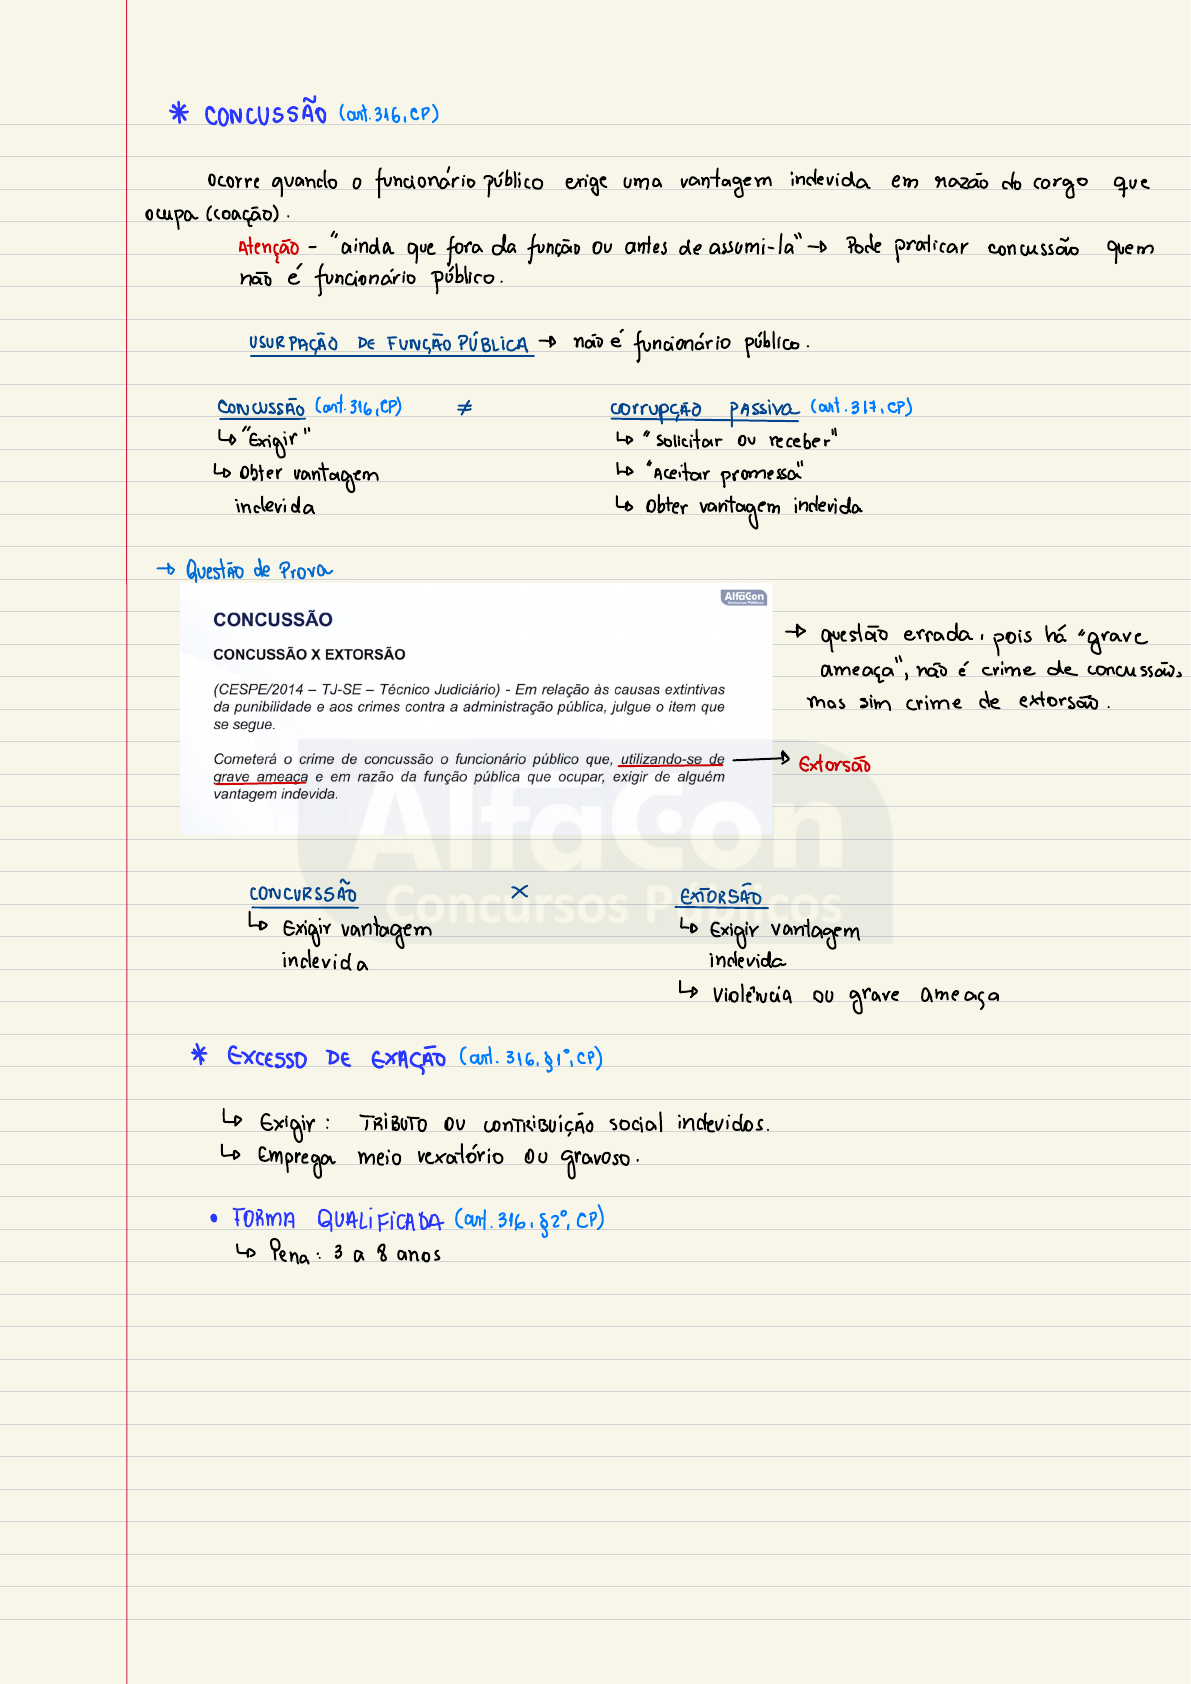 * CONCUSSÃO (art. 316, CP)
Ocorre quando o funcionário público exige uma vantagem indevida em razão do cargo que
ocupa (coação).
Atenção - "ainda que fora da função ou antes de assumi-la" → Pode praticar concussão quem
não é funcionário público.
USURPAÇÃO DE FUNÇÃO PÚBLICA → não é funcionário público.
CONCUSSÃO (art. 316, CP) ≠ CORRUPÇÃO PASSIVA (art. 317, CP)
↳ "Exigir" ↳ "Solicitar ou receber"
↳ Obter vantagem ↳ "Aceitar promessa"
indevida ↳ Obter vantagem indevida
→ Questão de Prova
AlfaCon
Concursos Públicos
CONCUSSÃO
CONCUSSÃO X EXTORSÃO
(CESPE/2014 – TJ-SE – Técnico Judiciário) - Em relação às causas extintivas
da punibilidade e aos crimes contra a administração pública, julgue o item que
se segue.
Cometerá o crime de concussão o funcionário público que, utilizando-se de
grave ameaça e em razão da função pública que ocupar, exigir de alguém
vantagem indevida.
→ questão errada, pois há "grave
ameaça", não é crime de concussão,
mas sim crime de extorsão.
→ Extorsão
AlfaCon
Concursos Públicos
CONCURSSÃO X EXTORSÃO
↳ Exigir vantagem ↳ Exigir vantagem
indevida indevida
↳ Violência ou grave ameaça
* EXCESSO DE EXAÇÃO (art. 316, §1º, CP)
↳ Exigir: TRIBUTO OU CONTRIBUIÇÃO social indevidos.
↳ Emprega meio vexatório ou gravoso.
• FORMA QUALIFICADA (art. 316, §2º, CP)
↳ Pena: 3 a 8 anos